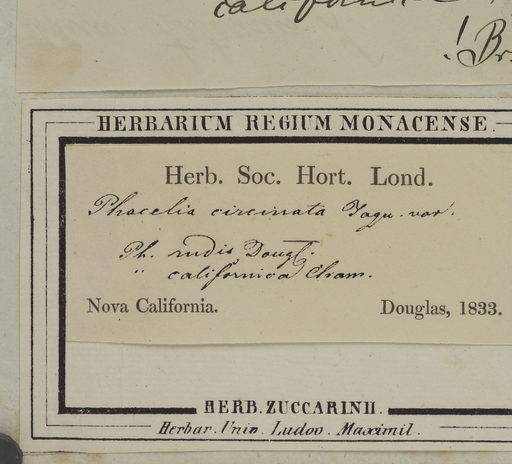 californica
! Br.
HERBARIUM REGIUM MONACENSE.
Herb. Soc. Hort. Lond.
Phacelia circinata Jaqu. var.
Ph. rudis Dougl.
" californica Cham.
Nova California. Douglas, 1833.
HERB. ZUCCARINII.
Herbar. Univ. Ludov. Maximil.